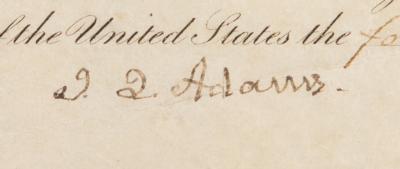 of the United States the fo
J. Q. Adams.